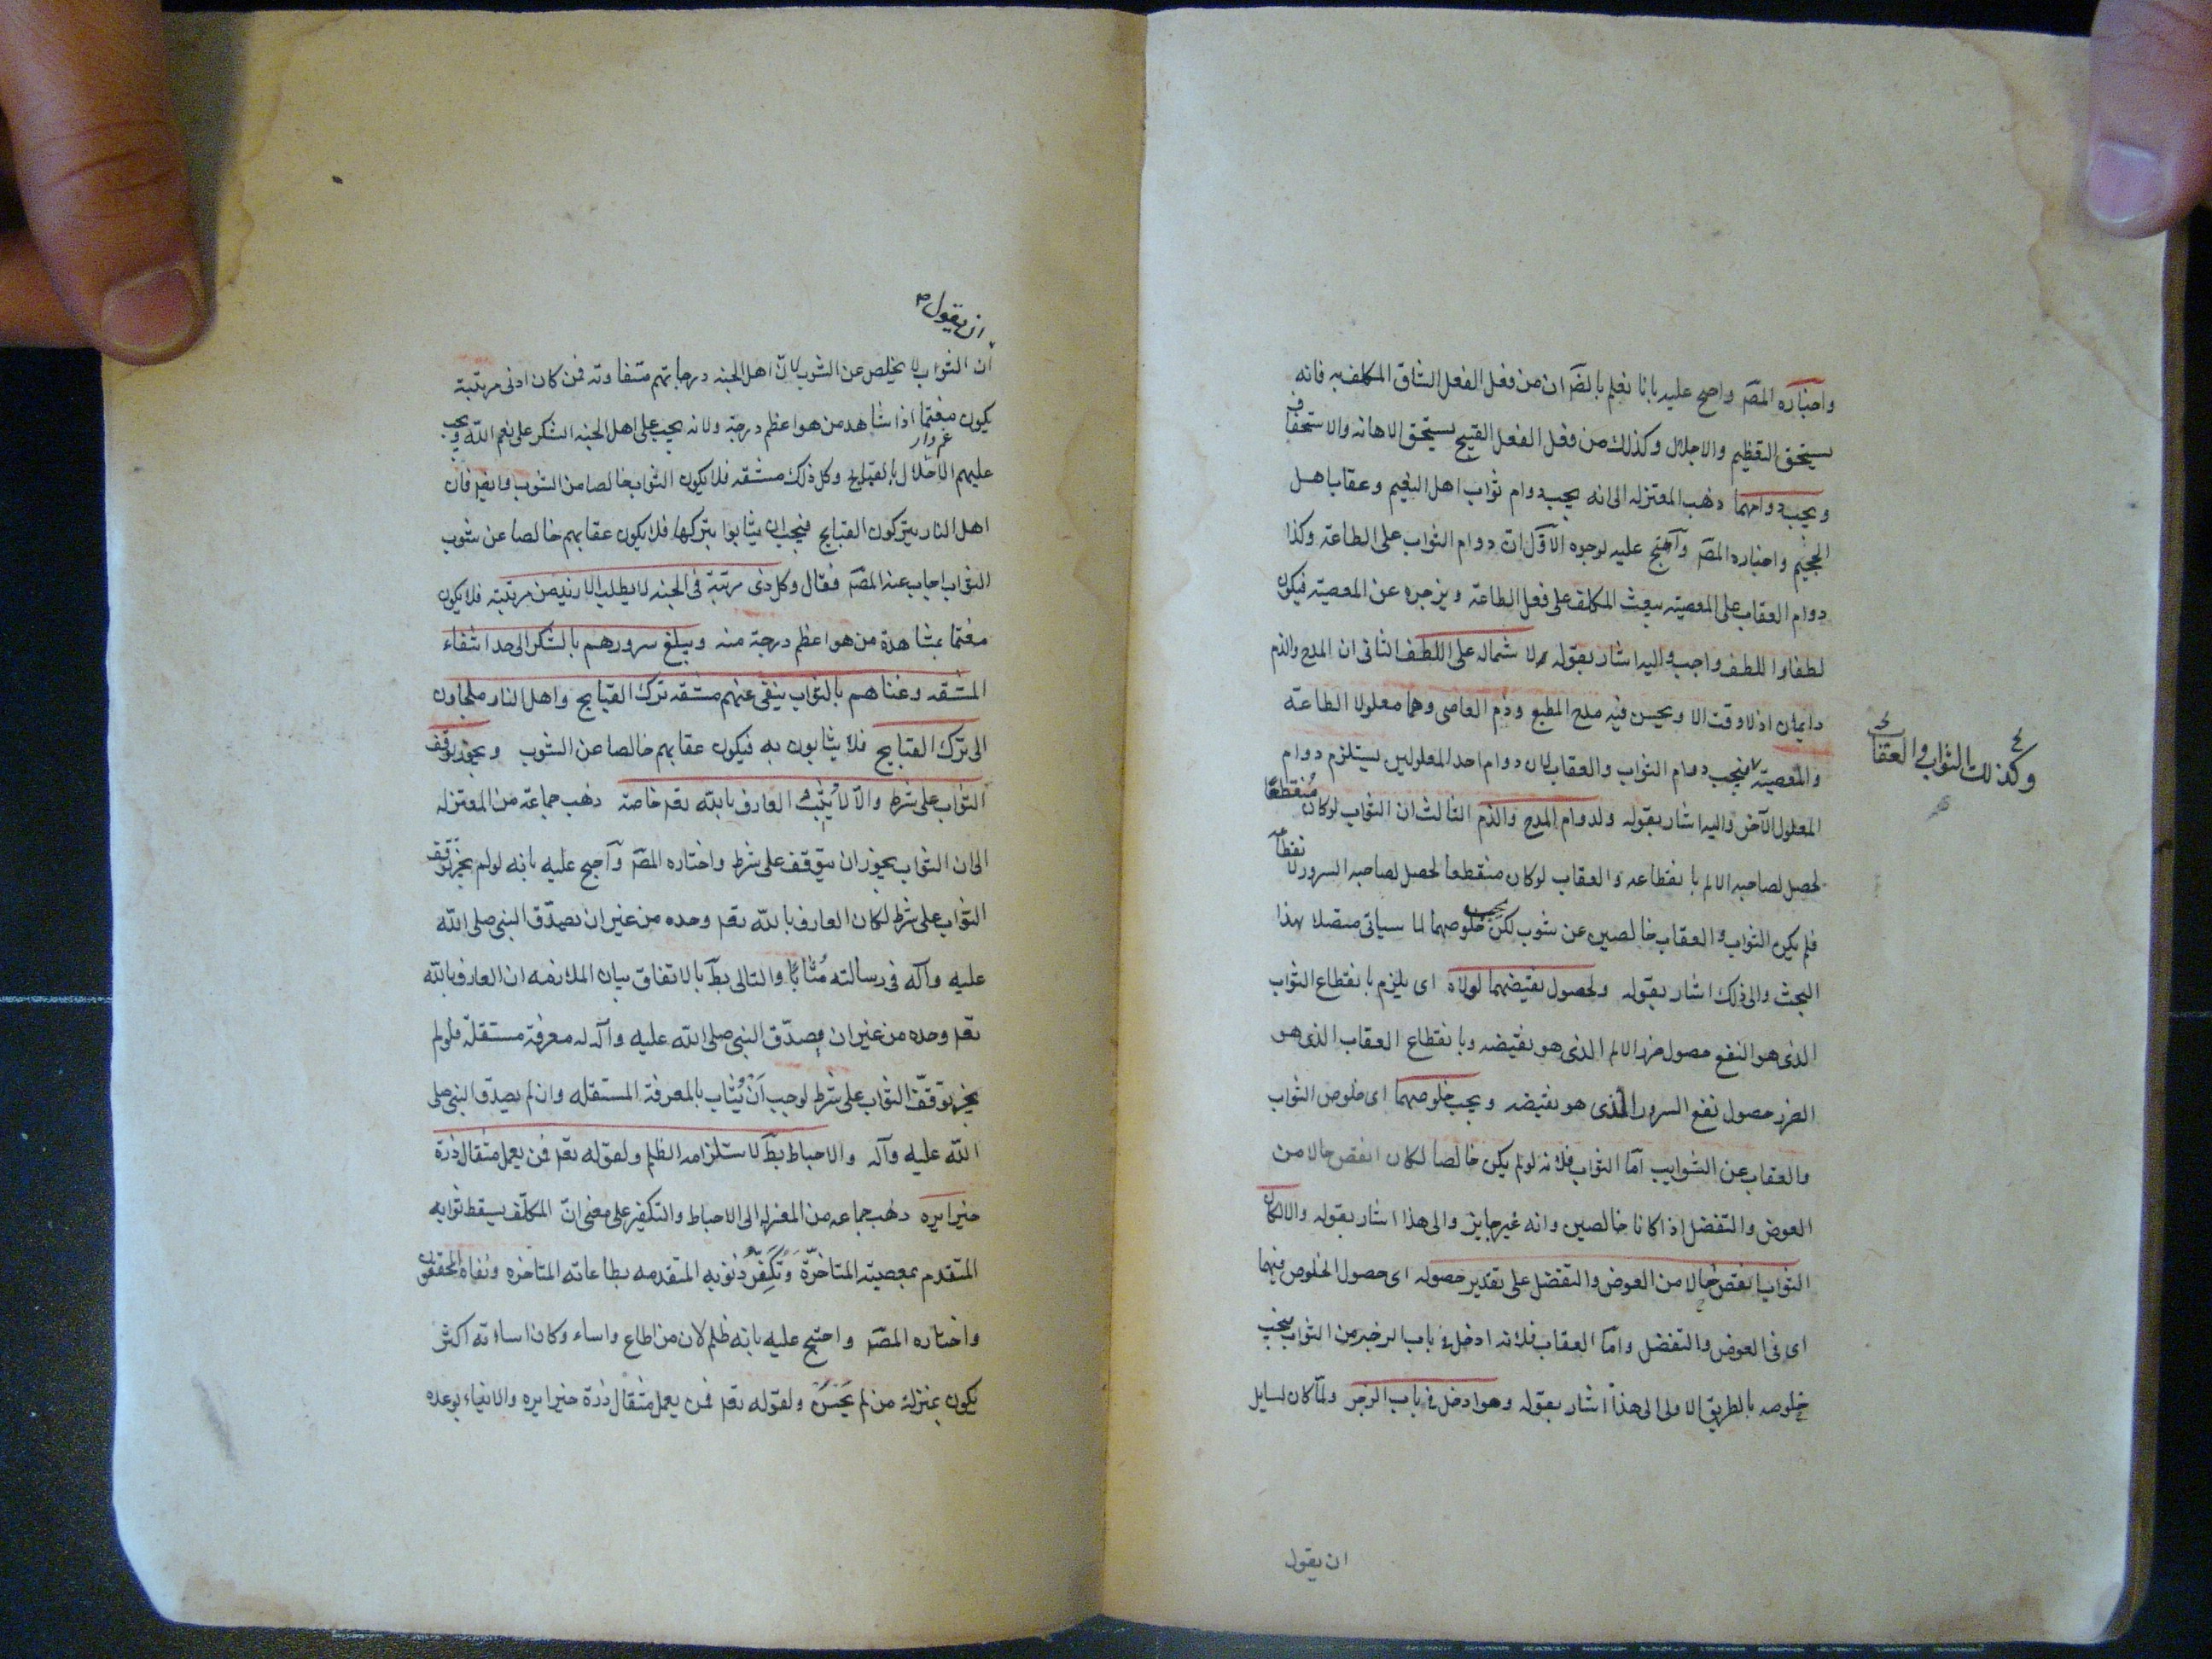 واختاره المصَ واحتج عليه بانا نعلم بالضَر ان من فعل الفعل الشاق المكلف به فانه
يستحق التعظيم والاجلال وكذلك من فعل الفعل القبيح يستحق الاهانه والاستخفاف
ويجب دوامهما ذهب المعتزله الى انه يجب دوام ثواب اهل النعيم وعقاب اهل
الجحيم واختاره المصَ وآحتج عليه لوجوه الآوّل انّ دوام الثواب على الطاعة وكذا
دوام العقاب على المعصيته يبعث المكلف على فعل الطاعة ويزجره عن المعصيته فيكون
لطفا واللطف واجب واليه اشار بقوله لا شماله على اللطف الثانى ان المدح والذم
دايمان اذ لا وقت الا ويحسن فيه مدح المطيع وذم العاصى وهما معلولا الطاعة
والمعصيته فيجب دوام الثواب والعقاب لان دوام احد المعلولين يستلزم دوام
وكذلك الثواب والعقاب
المعلول الآخر واليه اشار بقوله ولدوام المدح والذم الثالث ان الثواب لو كان مُنقطعًا
لحصل لصاحبه الالم بانقطاعه والعقاب لو كان منقطعا لحصل لصاحبه السرور لانقطاعه
فلم يكن الثواب والعقاب خالصين عن شوب لكن يجب خلوصهما لما سياتى متصلا بهذا
البحث والى ذلك اشار بقوله ولحصول نقيضهما لولاه اى يلزم بانقطاع الثواب
الذى هو النفع حصول ضرر الالم الذى هو نقيضه وبانقطاع العقاب الذى هو
الضرر حصول نفع السرور الذى هو نقيضه ويجب خلوصهما اى خلوص الثواب
والعقاب عن الشوايب امّا الثواب فلانه لو لم يكن خالصا لكان انقص حالا من
العوض والتفضل اذا كانا خالصين وانه غير جايز والى هذا اشار بقوله والا لكان
الثواب انقص حالا من العوض والتفضل على تقدير حصوله اى حصول الخلوص فيهما
اى فى العوض والتفضل وامّا العقاب فلانه ادخل فى باب الزجر من الثواب فيجب
خلوصه بالطريق الاولى الى هذا اشار بقوله وهو ادخل فى باب الزجر ولمّا كان لسايل
ان يقول
ان يقول
ان الثواب لا يخلص عن الشوب لانّ اهل الجنه درجاتهم متفاوته فمن كان ادنى مرتبة
يكون مغتما اذا شاهد من هو اعظم درجة ولانه يجب على اهل الجنه الشكر على نعم الله ويجب
عليهم الاخلال بالقبايح وكل ذلك مشقه فلا يكون الثواب خالصا من الشوب وايضا فان
اهل النار يتركون القبايح فيجب ان يثابوا بتركها فلا يكون عقابهم خالصا عن شوب
الثواب اجاب عنه المصَ فقال وكل ذى مرتبة فى الجنه لا يطلب الازيد من مرتبته فلا يكون
مغتما بمشاهدة من هو اعظم درجة منه ويبلغ سرورهم بالشكر الى حد انتفاء
المشقه وغناهم بالثواب ينفى عنهم مشقه ترك القبايح واهل النار ملجاون
الى ترك القبايح فلا يثابون به فيكون عقابهم خالصا عن الشوب ويجوز توقف
الثواب على شرط والّا لاُ يُثِب العارف بالله تعَ خاصة ذهب جماعة من المعتزله
الى ان الثواب يجوز ان يتوقف على شرط واختاره المصَ وآحتج عليه بانه لو لم يجز توقف
الثواب على شرط لكان العارف بالله تعَ وحده من غير ان يصدّق النبى صلى الله
عليه وآله فى رسالته مُثابًا والتالى بطَ بالاتفاق بيان الملازمه ان العارف بالله
تعَ وحده من غير ان يصدّق النبى صلى الله عليه وآله له معرفة مستقلّة فلو لم
يجز توقف الثواب على شرط لوجب اَنْ يُثاب بالمعرفة المستقله وان لم يصدق النبى صلى
الله عليه وآله والاحباط بطَ لاستلزامه الظلم ولقوله تعَ فمن يعمل مثقال ذرة
خيرا يره ذهب جماعه من المعتزله الى الاحباط والتكفير على معنى انّ المكلّف يسقط ثوابه
المتقدم بمعصيته المتاخرّة وَتُكَفِّرُ ذنوبه المتقدمه بطاعاته المتاخره ونفاه المحققون
واختاره المصَ واحتج عليه بانه ظلم لان من اطاع واساء وكان اساءته اكثر
يكون بمنزلة من لم يَحْسُن ولقوله تعَ فمن يعمل مثقال ذرة خيرا يره والايفاء بوعده